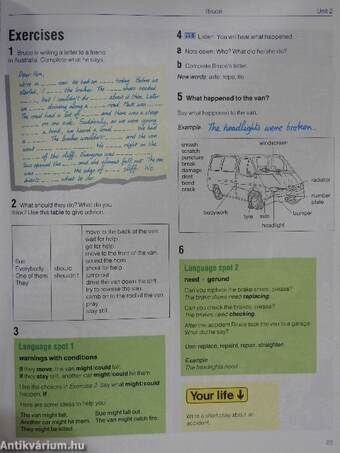 Bruce
Unit 2
Exercises
1 Bruce is writing a letter to a friend
in Australia. Complete what he says.
Dear Ken,
We're in ... now. We had an ... today. Before we
started, I ... the brakes. The ... shoes needed
..., but I couldn't ... about it then. Later
we ... driving along a ... road. Matt was ...
The road had a lot of ... and there was a steep
... on one side. Suddenly, as we were going
a bend, we heard a loud ... We had
a ... The brakes wouldn't ... and the van
the ... We ... right on the
of the cliff. Everyone was ...
Sue opened the ... and the ... almost fell out. The van
was ... the edge of ... cliff. We
didn't ... what to do.
2 What should they do? What do you
think? Use this table to give advice.
Sue
Everybody
One of them
They
should
shouldn't
move to the back of the van
wait for help
go for help
move to the front of the van
sound the horn
shout for help
jump out
drive the van down the cliff
try to reverse the van
climb on to the roof of the van
pray
stay still.
3
Language spot 1
warnings with conditions
If they move, the van might/could fall.
If they stay still, another car might/could hit them.
Use the choices in Exercise 2. Say what might/could
happen, if
Here are some ideas to help you:
The van might fall.
Sue might fall out.
Another car might hit them.
The van might catch fire.
They might be killed.
4 Listen! You will hear what happened.
a Note down: Who? What did he/she do?
b Complete Bruce's letter.
New words: axle, rope, tie
5 What happened to the van?
Say what happened to the van.
Example The headlights were broken.
smash
scratch
puncture
break
damage
dent
bend
crack
windscreen
radiator
number
plate
bumper
bodywork
tyre
headlight
6
Language spot 2
need + gerund
Can you replace the brake shoes, please?
The brake shoes need replacing.
Can you check the brakes, please?
The brakes need checking.
After the accident Bruce took the van to a garage.
What did he say?
Use: replace, repaint, repair, straighten
Example
The headlights need
Your life ↓
Write a short play about an
accident.
Antikvárium.hu